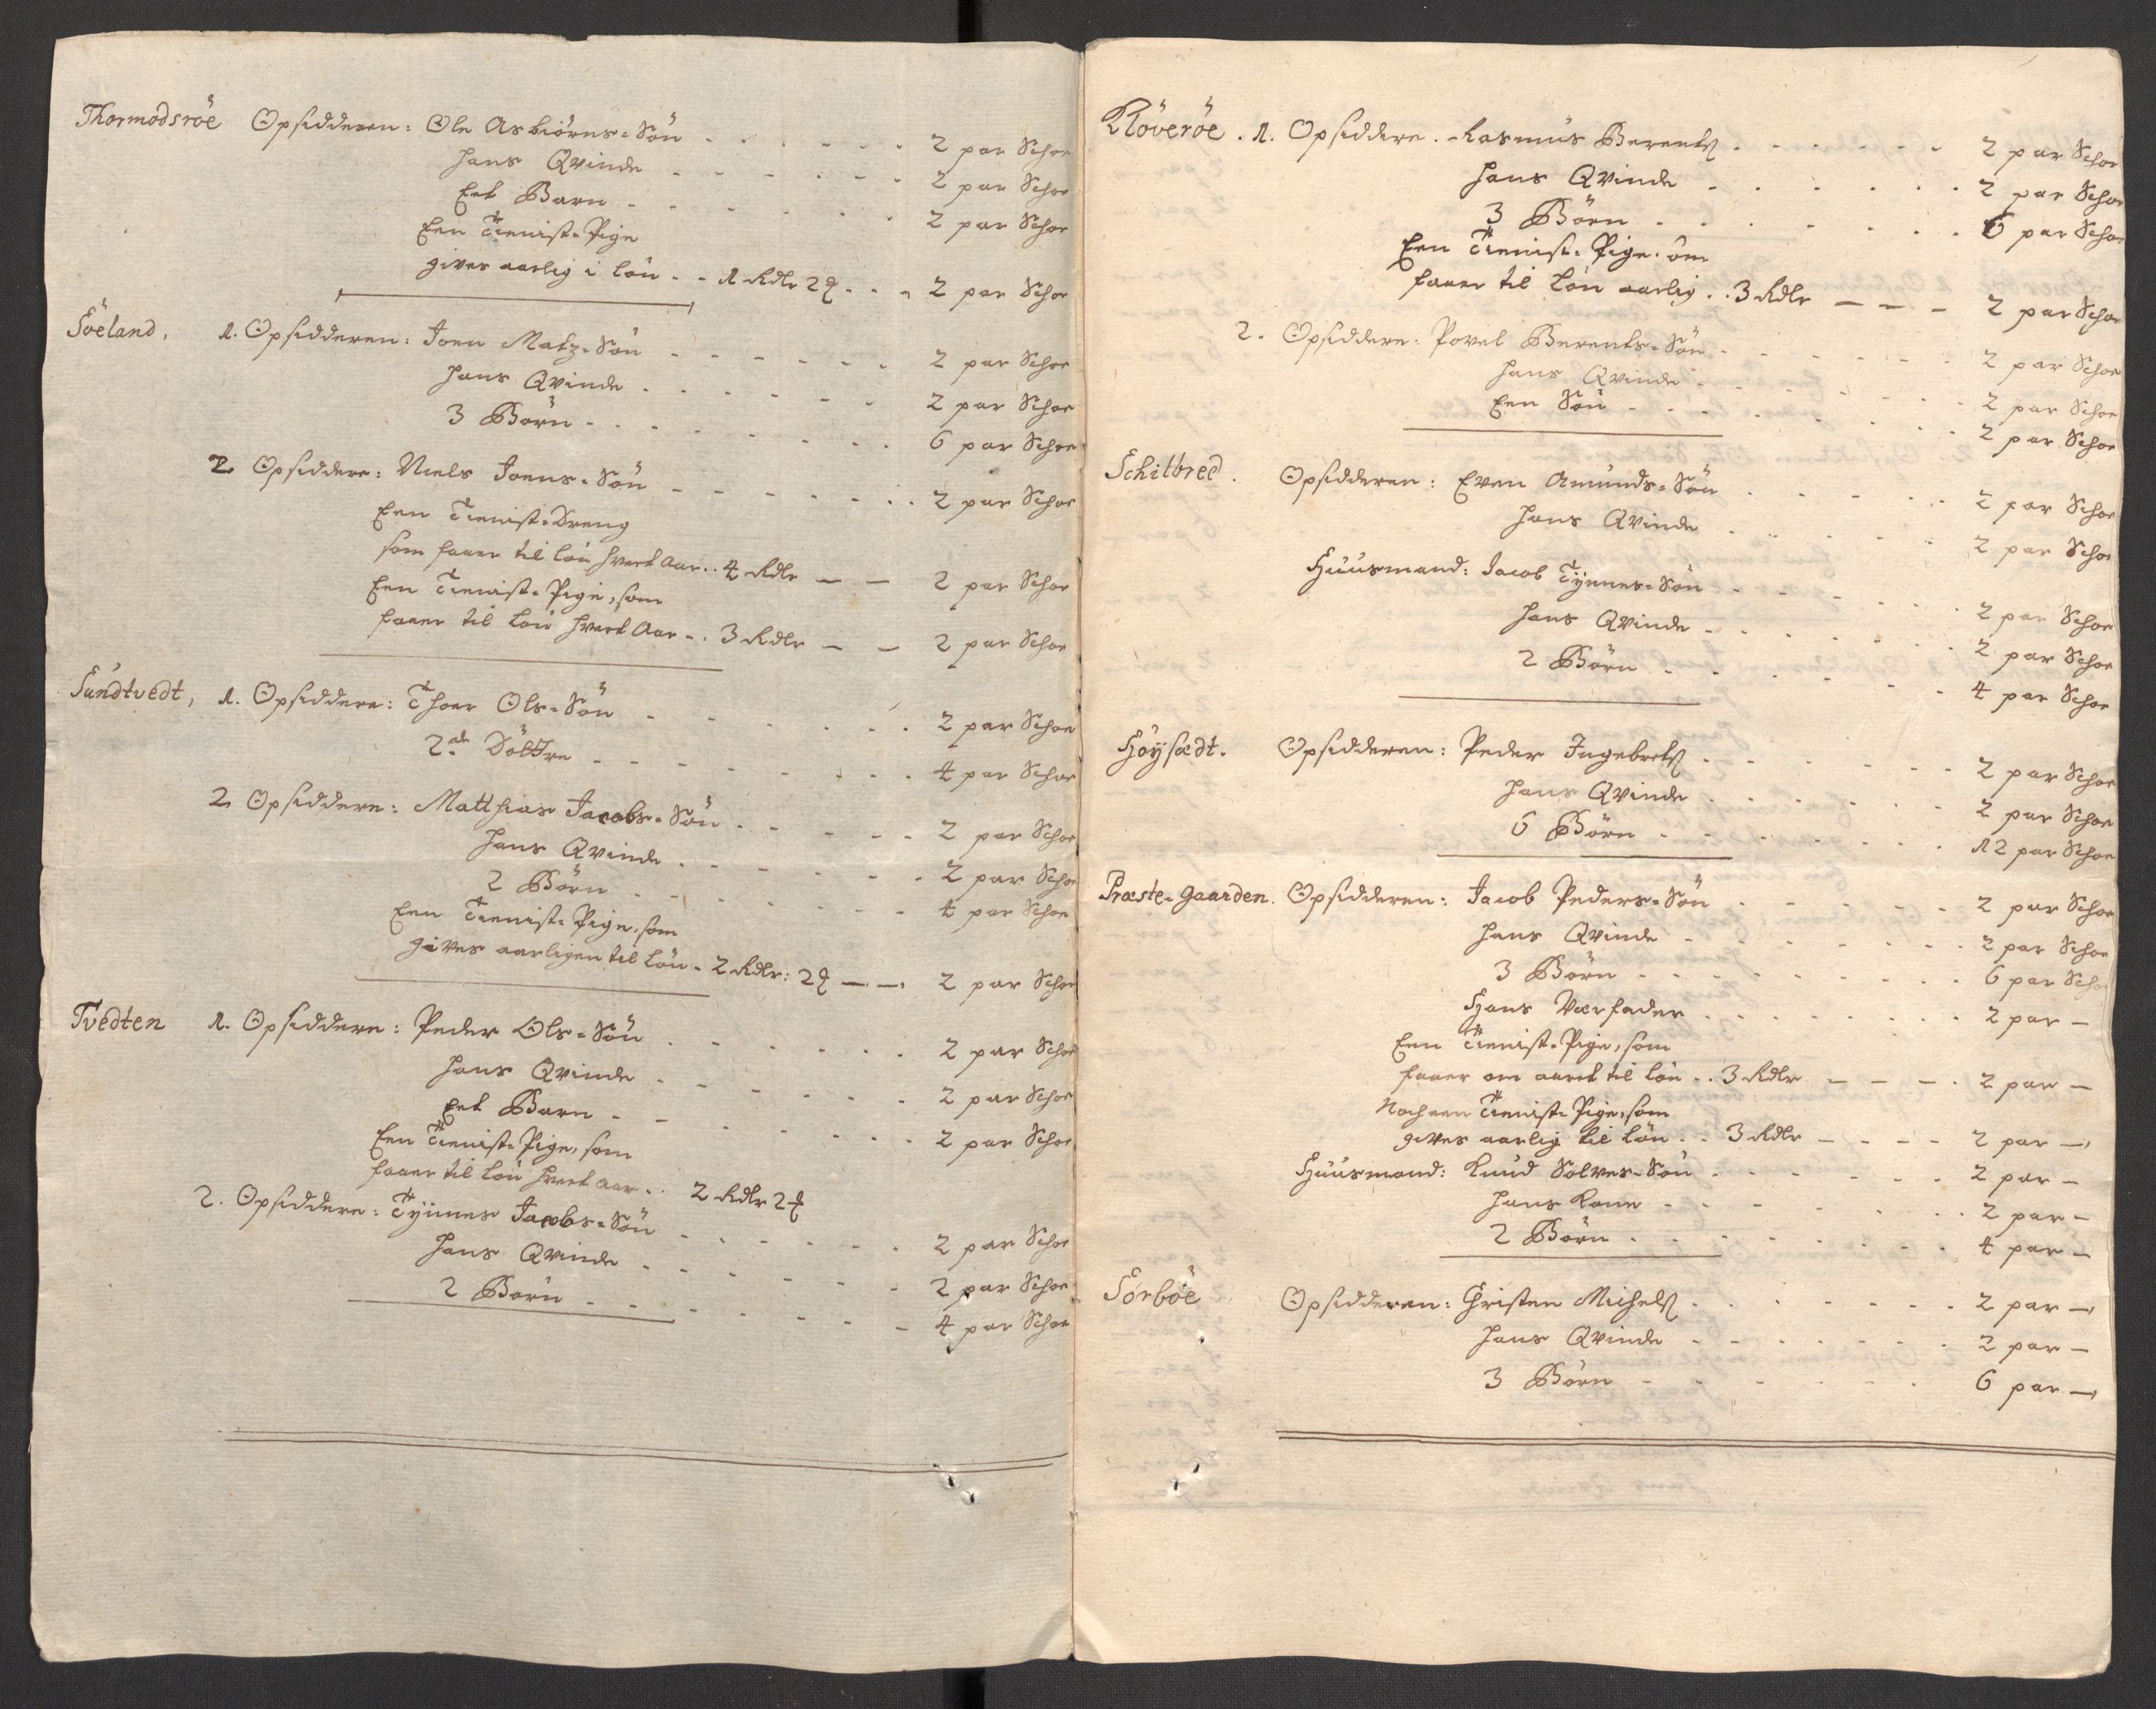 Thormodsröe Opsidderen: Ole Asbiörns-Sön - - - - - - 2 par Schoe
hans Qvinde - - - - - - 2 par Schoe
Eet Barn - - - - - - 2 par Schoe
Een Tienist-Pige
gives aarlig i lön - - 1 Rdlr 2 - - - 2 par Schoe
Söeland, 1. Opsidderen: Joen Matz-Sön - - - - - - 2 par Schoe
hans Qvinde - - - - - - 2 par Schoe
3 Börn - - - - - - - 6 par Schoe
2 Opsiddere: Niels Joens-Sön - - - - - - - 2 par Schoe
Een Tienist-Dreng
som faaer til lön hvert Aar.. 4 Rdlr — — 2 par Schoe
Een Tienist-Pige, som
faaer til lön hvert Aar -. 3 Rdlr — — 2 par Schoe
Sundtvedt, 1. Opsiddere: Thoer Ols-Sön - - - - - - 2 par Schoe
2de Döttre - - - - - - - - 4 par Schoe
2 Opsiddere: Matthias Jacobs-Sön - - - - - 2 par Schoe
hans Qvinde - - - - - - - 2 par Schoe
2 Börn - - - - - - - 4 par Schoe
Een Tienist-Pige, som
gives aarligen til Lön - 2 Rdlr: 2 — — 2 par Schoe
Tvedten 1. Opsiddere: Peder Ols-Sön - - - - - - 2 par Schoe
hans Qvinde - - - - - - - 2 par Schoe
Eet Barn - - - - - - - - 2 par Schoe
Een Tienist-Pige, som
faaer til lön hvert aar - . 2 Rdlr 2
2. Opsiddere: Tyünnes Jacobs-Sön - - - - - - 2 par Schoe
hans Qvinde - - - - - - 2 par Schoe
2 Börn - - - - - - - - 4 par Schoe
Klöveröe. 1. Opsiddere. Rasmus Berents - - - - - - 2 par Schoe
hans Qvinde - - - - - - 2 par Schoe
3 Börn - - - - - - - 6 par Schoe
Een Tienist-Pige. om
faaer til lön aarlig . . 3 Rdlr — — - 2 par Schoe
2. Opsiddere: Povel Berents-Sön - - - - - - 2 par Schoe
hans Qvinde - - - - - - - 2 par Schoe
Een Sön - - - - - - - - 2 par Schoe
Schilbred. Opsidderen: Even Amunds-Sön - - - - - 2 par Schoe
hans Qvinde - - - - - - 2 par Schoe
Huusmand: Jacob Tyünnes-Sön - - - - - - 2 par Schoe
hans Qvinde - - - - - - - 2 par Schoe
2 Börn - - - - - - - 4 par Schoe
Höysædt. Opsidderen: Peder Ingebrets - - - - - - - 2 par Schoe
hans Qvinde - - - - - - 2 par Schoe
6 Börn - - - - - - - 12 par Schoe
Præste-gaarden. Opsidderen: Jacob Peders-Sön - - - - - 2 par Schoe
hans Qvinde - - - - - - - 2 par Schoe
3 Börn - - - - - - - - 6 par Schoe
Hans Værfader - - - - - - - - 2 par —
Een Tienist-Pige, som
faaer om aaret til lön - . 3 Rdlr - - - . 2 par —
Noch een Tienist-Pige, som
gives aarlig til lön . . 3 Rdlr - - - - 2 par —
Huusmand: Knud Solves-Sön - - - - - - - 2 par —
hans Kone - - - - - - - - 2 par —
2 Börn - - - - - - - - 4 par —
Sörböe Opsidderen: Christen Michels - - - - - - - 2 par —
hans Qvinde - - - - - - - 2 par —
3 Börn - - - - - - - 6 par —